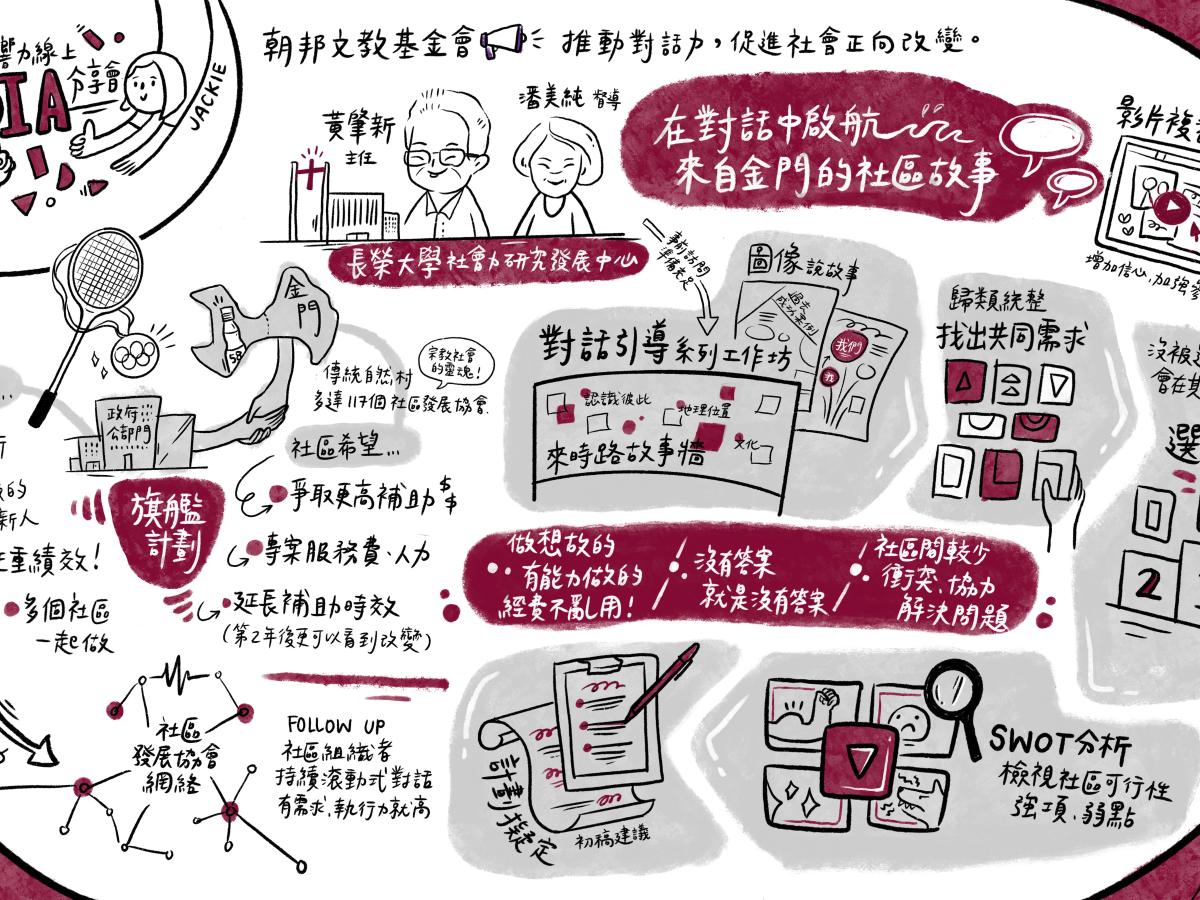 響力線上
IA
分享會
JACKIE
朝邦文教基金會
推動對話力，促進社會正向改變。
黃肇新
主任
潘美純 督導
長榮大學社會力研究發展中心
在對話中啟航
來自金門的社區故事
影片複
增加信心、加強
事前訪問
準備充足
金門
58
傳統自然村
多達117個社區發展協會
宗教社會
的靈魂！
政府
公部門
社區希望...
旗艦
計劃
爭取更高補助$$
專案服務費、人力
延長補助時效
(第2年後更可以看到改變)
的
新人
重績效！
多個社區
一起做
社區
發展協會
網絡
FOLLOW UP
社區組織者
持續滾動式對話
有需求、執行力就高
對話引導系列工作坊
認識彼此
地理位置
文化
來時路故事牆
圖像說故事
過去
成功案例
我們
我
歸類統整
找出共同需求
沒被
會在
選
2
做想做的
有能力做的
經費不亂用！
沒有答案
就是沒有答案
社區間較少
衝突、協力
解決問題
計劃擬定
初稿建議
SWOT分析
檢視社區可行性
強項、弱點